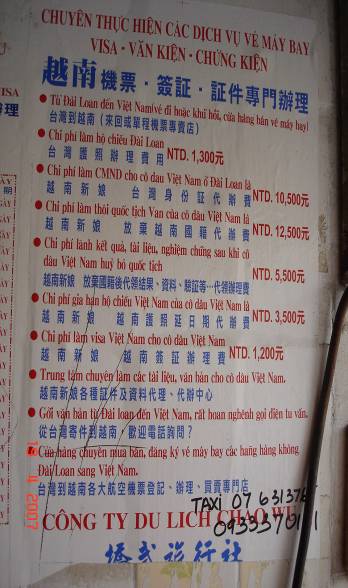 CHUYÊN THỰC HIỆN CÁC DỊCH VỤ VÉ MÁY BAY
VISA · VĂN KIỆN · CHỨNG KIỆN
越南機票 · 簽証 · 証件專門辦理
● Từ Đài Loan đến Việt Nam(vé đi hoặc khứ hồi, cửa hàng bán vé máy bay)
台灣到越南(來回或單程機票專賣店)
● Chi phí làm hộ chiếu Đài Loan
台灣護照辦理費用 NTD. 1,300元
● Chi phí làm CMND cho cô dâu Việt Nam ở Đài Loan là
越南新娘 台灣身份証代辦費 NTD. 10,500元
● Chi phí làm thôi quốc tịch Van của cô dâu Việt Nam là
越南新娘 放棄越南國籍代辦費 NTD. 12,500元
● Chi phí lãnh kết quả, tài liệu, nghiệm chứng sau khi cô
dâu Việt Nam huỷ bỏ quốc tịch
越南新娘 放棄國籍後代領結果、資料、驗証等…代領辦理費 NTD. 5,500元
● Chi phí gia hạn hộ chiếu Việt Nam của cô dâu Việt Nam là
越南新娘 越南護照延日期代辦費 NTD. 3,500元
● Chi phí làm visa Việt Nam cho cô dâu Việt Nam
越南新娘 越南簽証辦理費 NTD. 1,200元
● Trung tâm chuyên làm các tài liệu, văn bản cho cô dâu Việt Nam.
越南新娘各種証件及資料代理、代辦中心
● Gởi văn bản từ Đài loan đến Việt Nam, rất hoan nghênh gọi điện tư vấn.
從台灣寄件到越南,歡迎電話詢問?
● Cửa hàng chuyên mua bán, đăng ký vé máy bay các hãng hàng không
Đài Loan sang Việt Nam.
台灣到越南各大航空機票登記、辦理、買賣專門店
TAXI 07 6313
CÔNG TY DU LỊCH CHAO WU
旅行社
19 4 2007